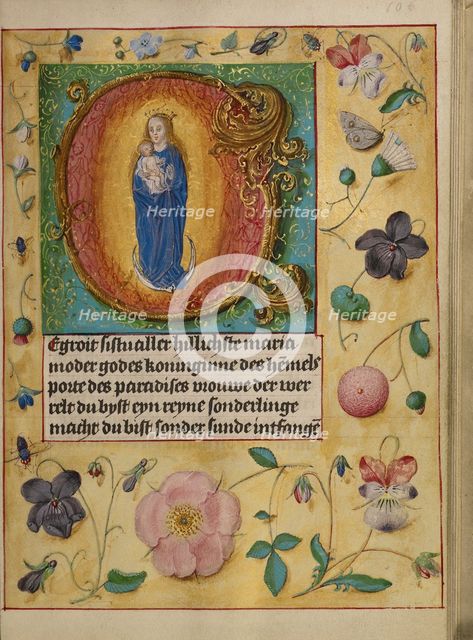 Egroit sistu aller hillichste maria
moder godes koninginne des hēmels
porte des paradises vrouwe der wer
relt du byst eyn reyne sonderlinge
macht du bist sonder sunde intfangē
Heritage
Heritage
Heritage
Heritage
Heritage
Heritage